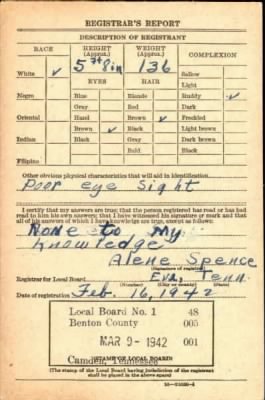 REGISTRAR'S REPORT
DESCRIPTION OF REGISTRANT
RACE HEIGHT (Approx.) WEIGHT (Approx.) COMPLEXION
White ✓ 5 ft 8 in 136 Sallow
EYES HAIR Light
Negro Blue Blonde Ruddy ✓
Gray Red Dark
Oriental Hazel Brown ✓ Freckled
Brown ✓ Black Light brown
Indian Black Gray Dark brown
Bald Black
Filipino
Other obvious physical characteristics that will aid in identification
Poor eye sight
I certify that my answers are true; that the person registered has read or has had
read to him his own answers; that I have witnessed his signature or mark and that
all of his answers of which I have knowledge are true, except as follows:
None to my
knowledge
Alene Spence
(Signature of registrar)
Registrar for Local Board Eva, Tenn.
(Number) (City or county) (State)
Date of registration Feb. 16, 1942
Local Board No. 1 48
Benton County 005
MAR 9- 1942 001
Camden, Tennessee
(STAMP OF LOCAL BOARD)
(The stamp of the Local Board having jurisdiction of the registrant
shall be placed in the above space)